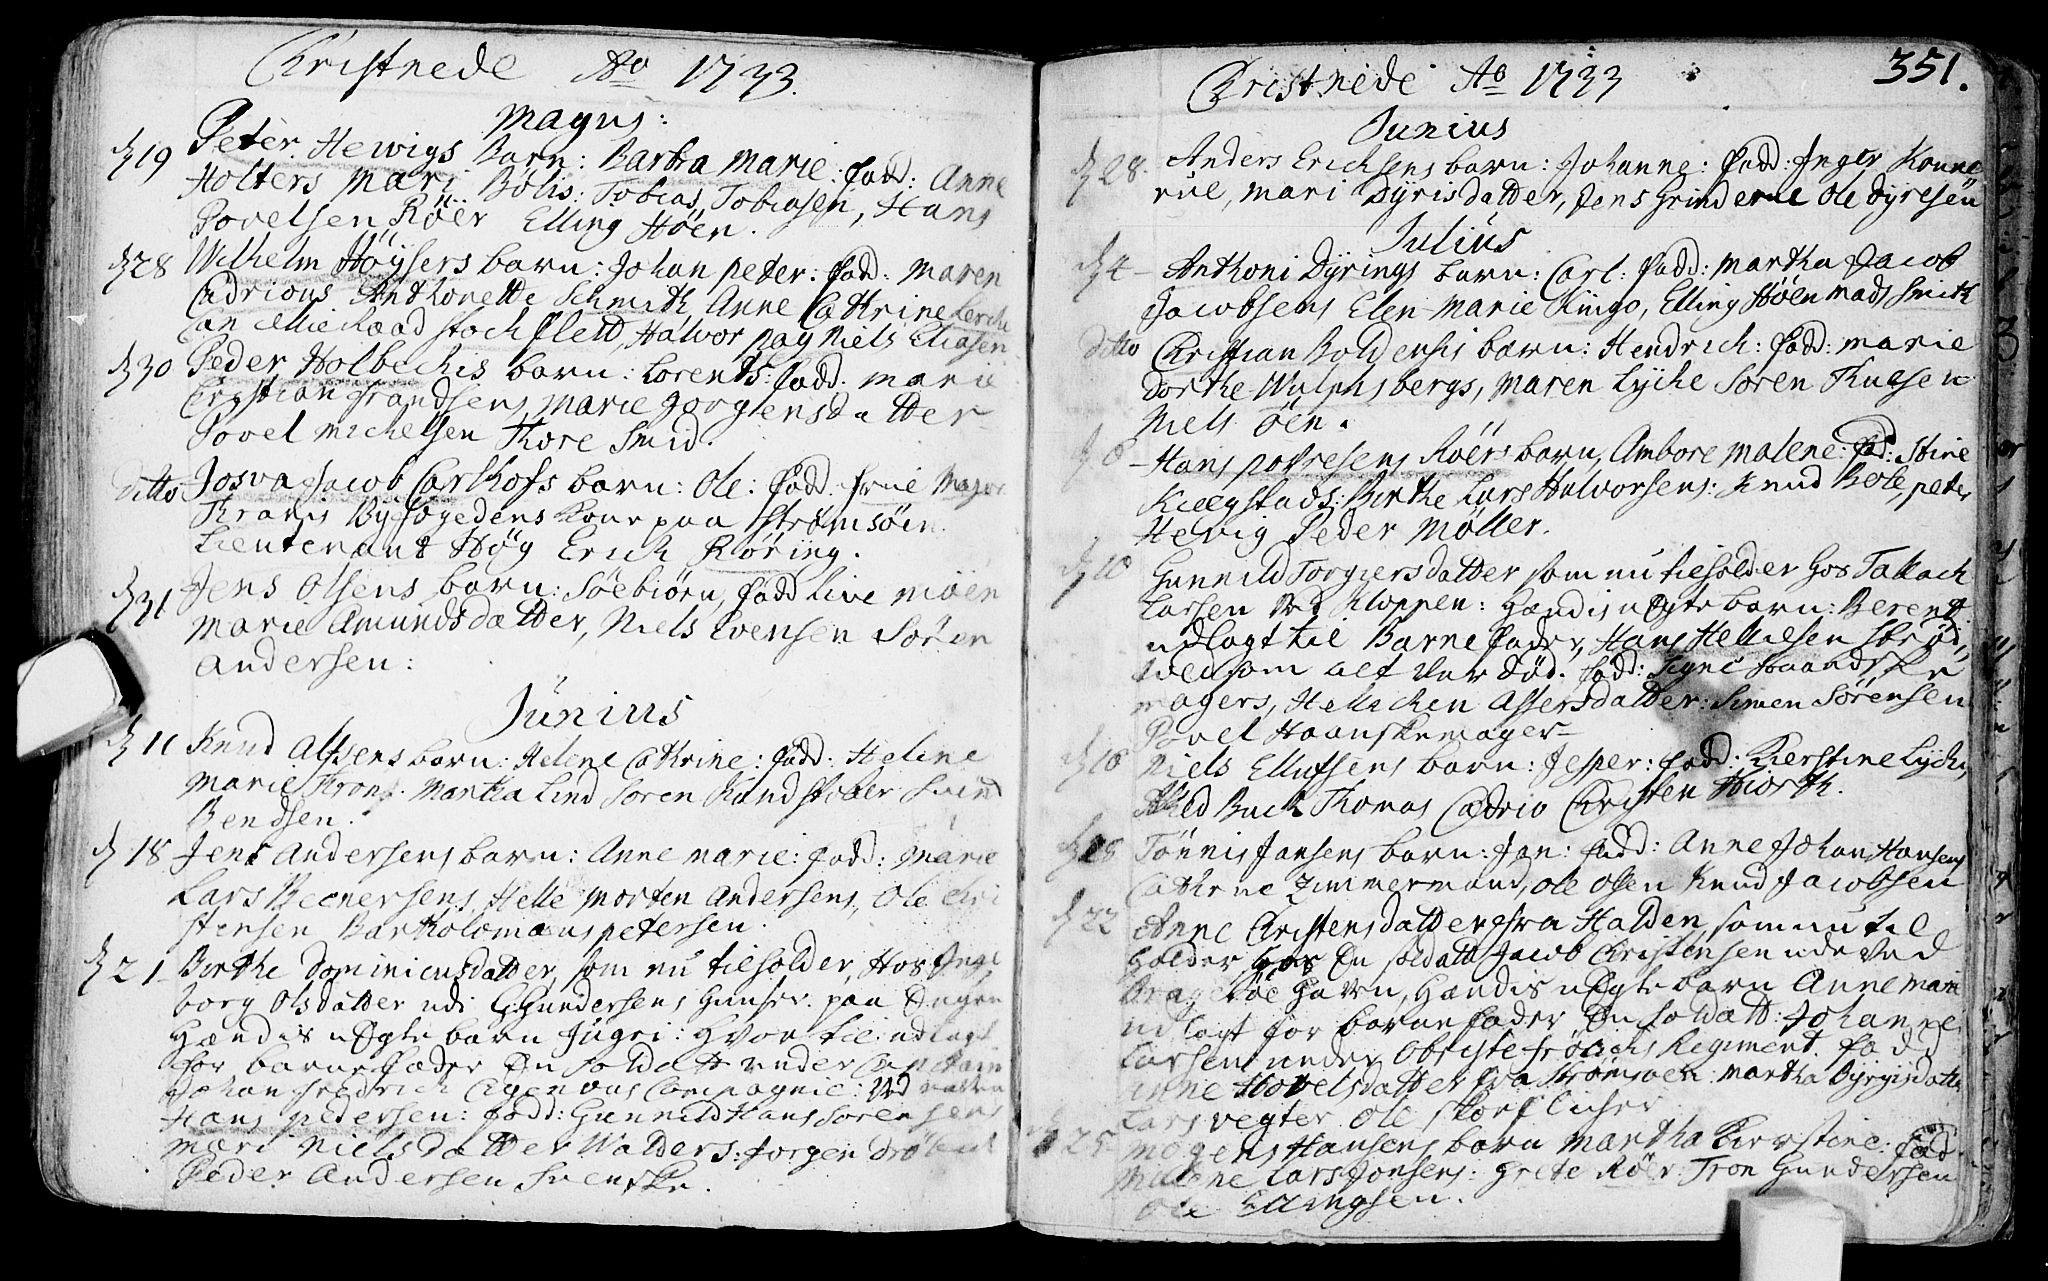 Christnede Ao 1733.
Majus:
d 19 Peter Hewigs Barn: Barbra Marie: fadd: Anne
Holters Mari Bölis: Tobias Tobiasen, Hans
Povelsen Röer Elling Höen.
d 28 Wilhelm Höysers barn: Johan peter: fadd: Maren
Cadrious Anthonette Schmith, Anne Cathrine Lerche
Halvor pay Niels Eliasen
d 30 Peder Holbechis barn: Lorents: fadd: Marie
Cristian frandsens, Marie Jörgensdatter
Povel Michelsen Thore Smid.
ditto Josva Jacob Carlhofs barn: Ole: fadd: frue Major
Kraris Byfogedens Kone paa Strömsöen
Lieutenant Hög Erich Röring.
d 31 Jens Olsens barn: Söebiörn, fadd Live Möen
Marie Amundsdatter, Niels Evensen Sören
Andersen:
Junius
d 11 Knud Alfsens barn: Helene Cathrine: fadd: Helene
Marie Martha Lind Sören Svend
Bendsen.
d 18 Jens Andersens barn: Anne Marie: fadd: Marie
Lars Helle Morten Andersens, Ole Chri
stensen Bartholomæus petersen.
d 21 Birthe Dominicusdatter, som nu tilholder, Hos Inge
borg Olsdatter udi G: Gundersens paa Engen
Hændis uEgte barn Jugri: Hvor til udlagt
for barne fader En Soldatt under Captain
Johan fredrich Compagnie: Ved
Hans pedersen: fadd: Gunnild Hans Sörensens
Mari Nielsdatter Walders: Jörgen
Peder Andersen Svenske.
351.
Christnede Ao 1733
Junius
d 28 Anders Erichsens barn: Johanne: fadd: Inger Konne
rue, Mari Dyrisdatter, Jens Grinderne Ole Dyresen
Julius
d 4 Anthoni Dyrings barn: Carl: fadd: Martha Jacob
Jacobsens Elen Marie Kingo, Elling Höen Mads Smith
ditto Christian barn: Hendrich: fadd: Marie
Dorthe Wulphsbergs, Maren Lyche Sören
Niels Öen.
Hans Röers barn, Ambore Malene: fad: Stine
Birthe Lars Halvorsens: Knud Bole, peter
Hervig Peder Möller.
d 10 Gunnild Torgiersdatter som nu tilholder Hos
Larsen Ved Kloppen: Hændis uEgte barn: Berent
udlagt til Barnefader, Hans Hellesen
som alt var död. fadd: Signe Haandske
magers, Helichen Assersdatter: Simen Sörensen
Povel Haanskemager
Niels Ellufsens barn: Jesper: fadd: Kierstine Lyche,
Buck Thomas Cadrio Christen Hiorth.
Tönnis Jansens barn: Jan: fadd: Anne Johan Hansens
Cathrine Zimmermand, Ole Olsen Knud Jacobsen
d 22 Anne Christensdatter fra Halden, som nu til
Holder hos En soldatt Jacob Christensen ude Ved
Havn, Hændis uEgte barn Anne Mari
udlagt for barnefader En soldatt: Johannes
Larsen under Obriste Regiment. fadd
Anne Hovelsdatter fra Strömsöen: Martha
Lars vegter Ole
25 Mogens Hansens barn Martha Kirstine: fad
Malene Lars Jonsens: Grete Röer: Tron Gundersen
Ole Ellingsen.